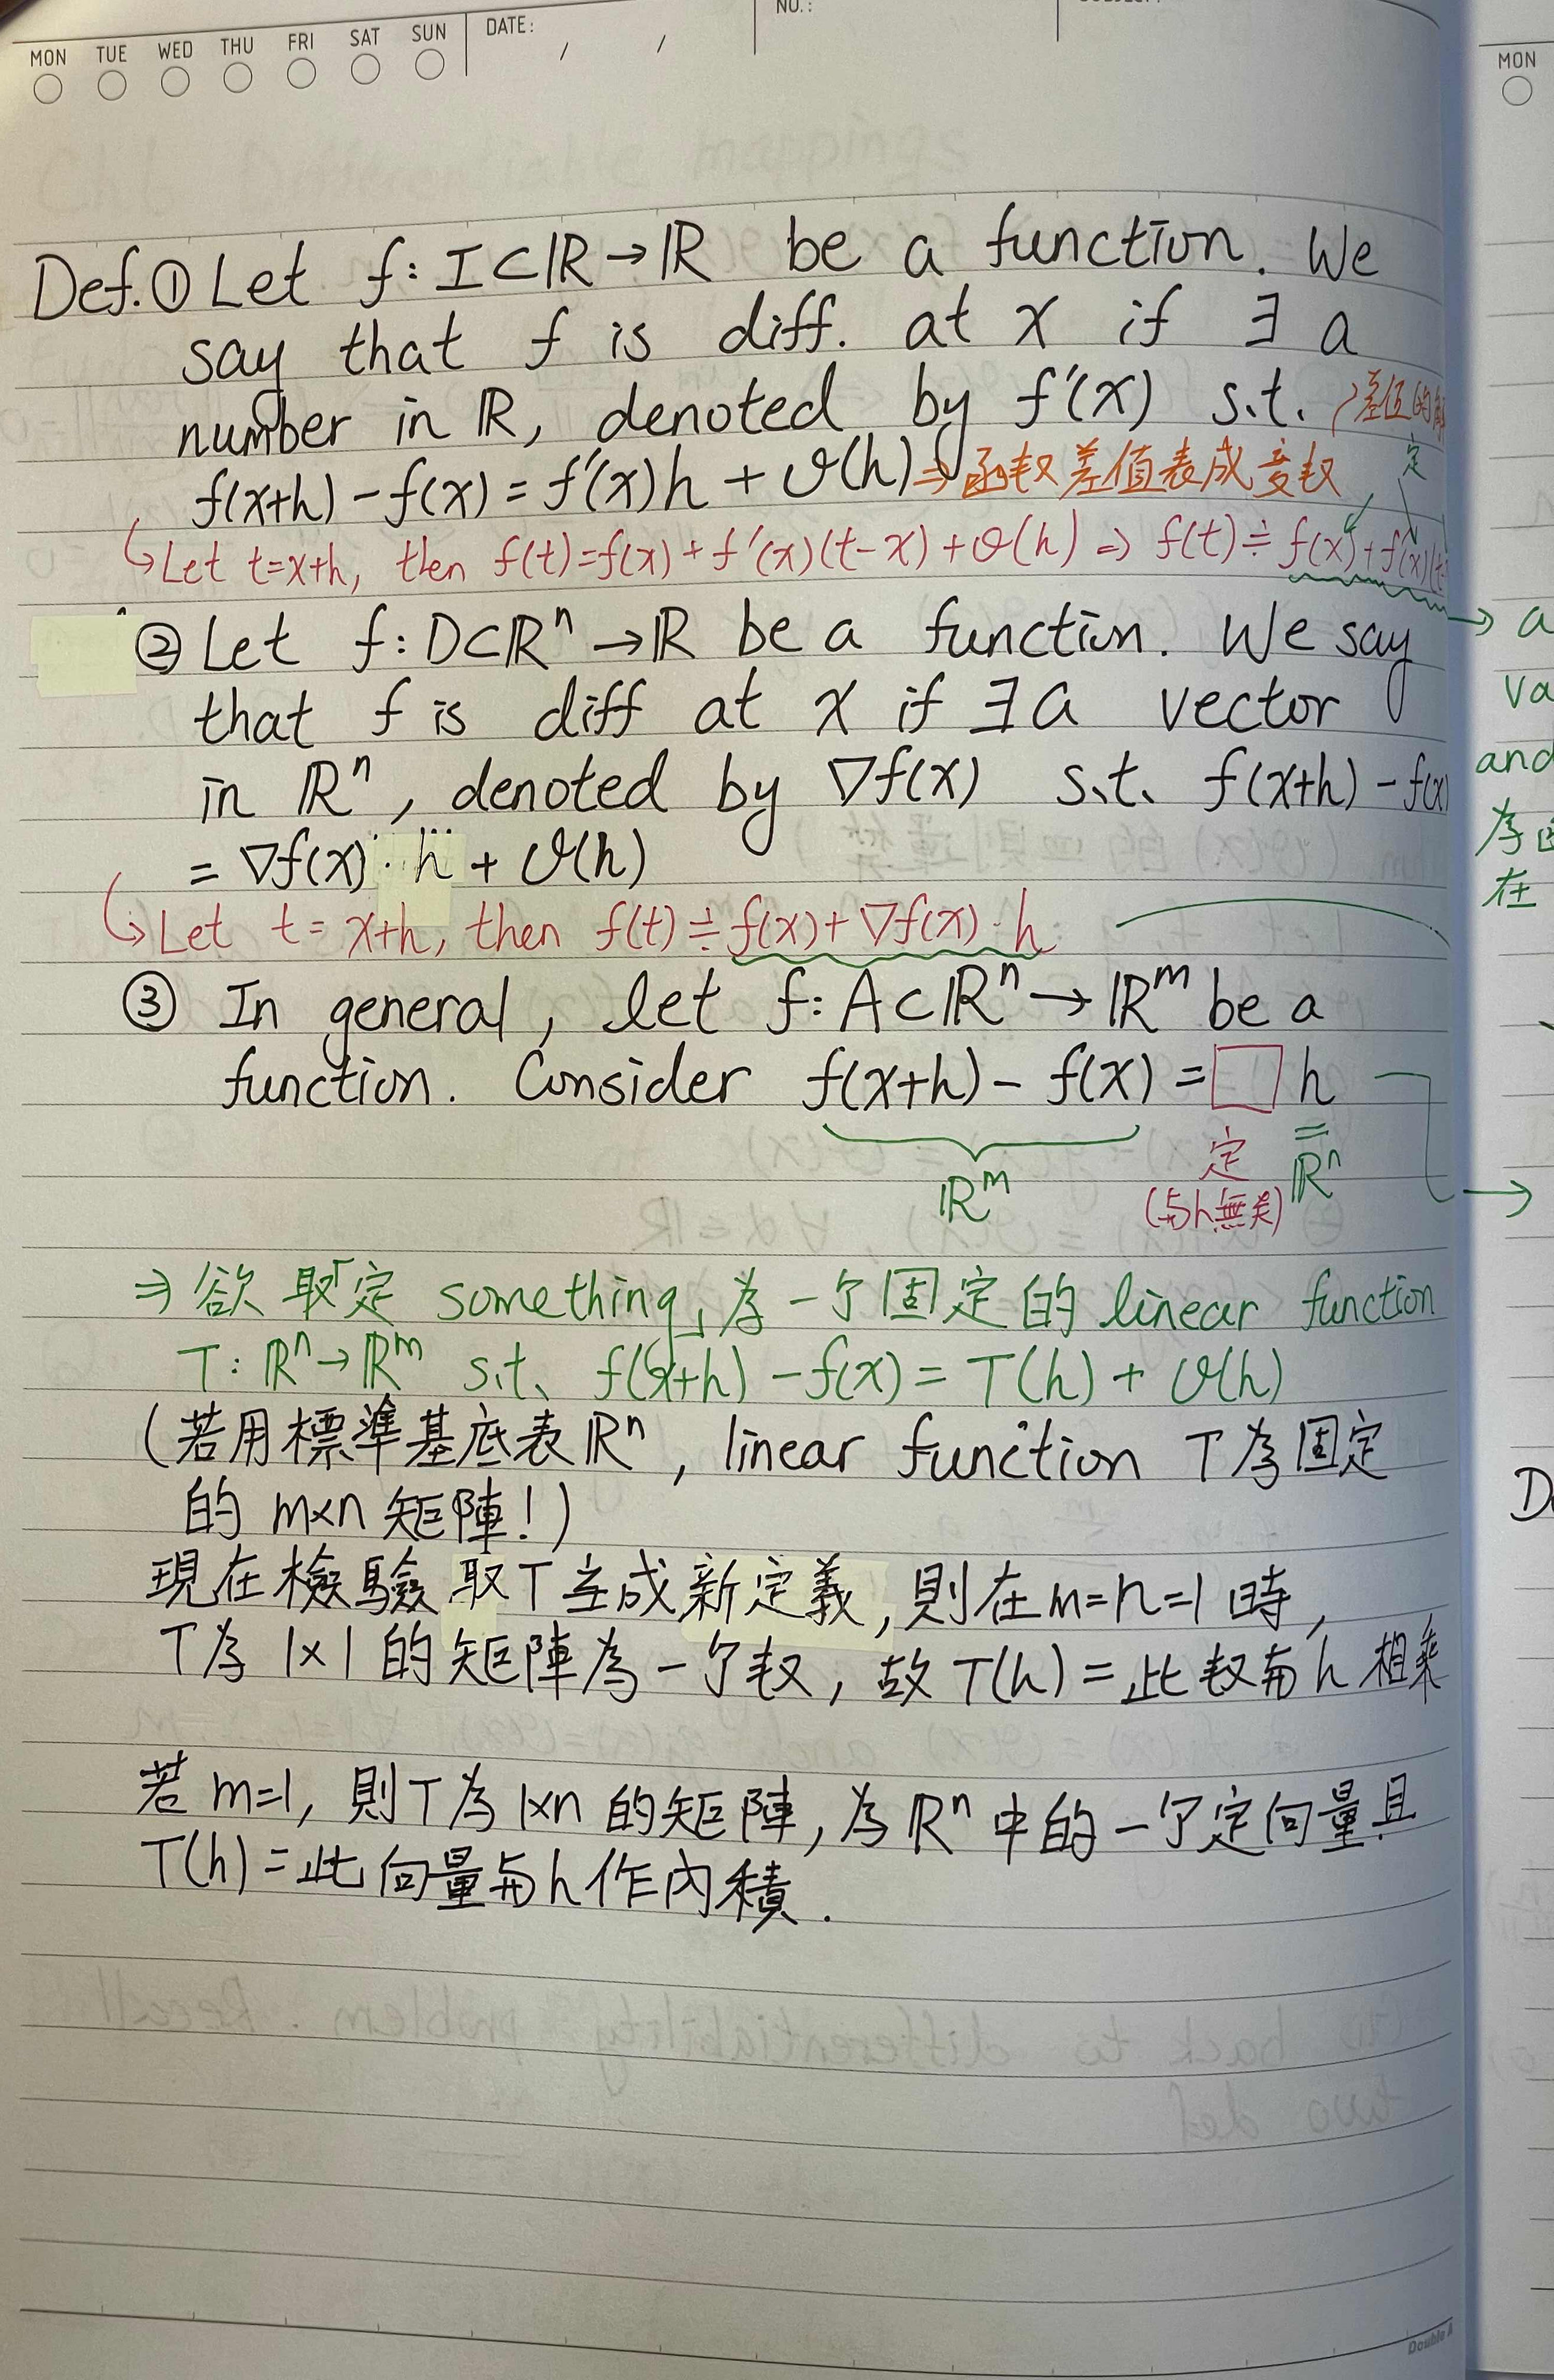 MON TUE WED THU FRI SAT SUN DATE: / / NO.:
MON
Def.① Let f: I⊂ℝ→ℝ be a function. We
say that f is diff. at x if ∃ a
number in ℝ, denoted by f'(x) s.t.
差值的
f(x+h)-f(x) = f'(x)h + O(h) ⇒函数差值表成变数
定
↳Let t=x+h, then f(t)=f(x)+f'(x)(t-x)+O(h) ⇒ f(t)≑f(x)+f'(x)(t
→ a
②Let f: D⊂ℝⁿ→ℝ be a function. We say
va
that f is diff at x if ∃ a vector
and
in ℝⁿ, denoted by ∇f(x) s.t. f(x+h)-f(x)
為
= ∇f(x)·h + O(h)
在
↳Let t=x+h, then f(t)≑f(x)+∇f(x)·h
③ In general, let f: A⊂ℝⁿ→ℝᵐ be a
function. Consider f(x+h)-f(x)=□h
ℝᵐ 定 ℝⁿ
(与h無关)
⇒欲取「定something」為一个固定的linear function
T: ℝⁿ→ℝᵐ s.t. f(x+h)-f(x)=T(h)+O(h)
(若用標準基底表ℝⁿ, linear function T為固定
的 m×n 矩陣!)
現在檢驗取T当成新定義,則在m=n=1時,
T為1×1的矩陣為一个数,故T(h)=此数与h相乘
若m=1,則T為1×n的矩陣,為ℝⁿ中的一个定向量且
T(h)=此向量与h作內積.
Double A